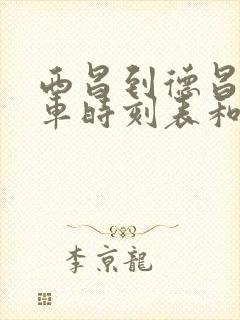 西昌到德昌
车時刻表和
李京龍